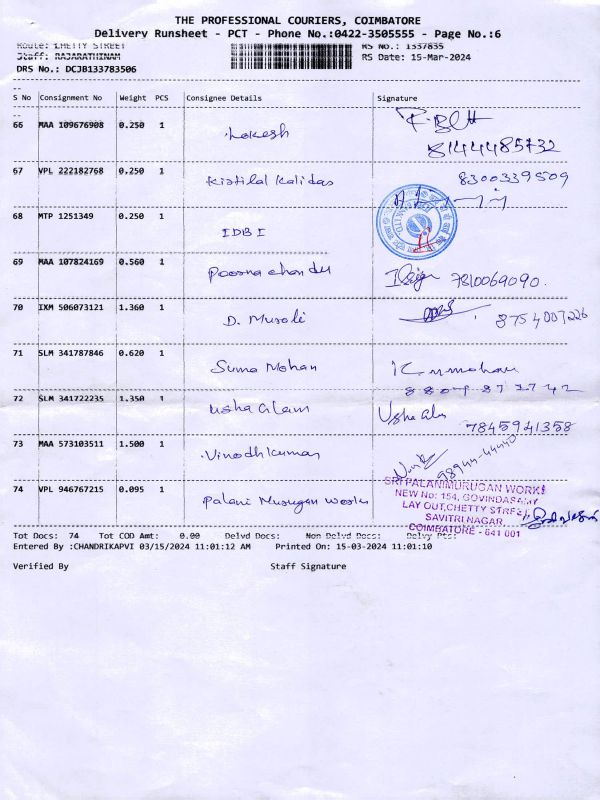 THE PROFESSIONAL COURIERS, COIMBATORE
Delivery Runsheet - PCT - Phone No.:0422-3505555 - Page No.:6
Route: CHETTY STREET RS No.: 1337835
Staff: RAJARATHINAM RS Date: 15-Mar-2024
DRS No.: DCJB133783506
S No Consignment No Weight PCS Consignee Details Signature
66 MAA 109676908 0.250 1 Lokesh
8144485732
67 VPL 222182768 0.250 1 Kistilal Kalidas 8300339509
68 MTP 1251349 0.250 1 IDBI
69 MAA 107824169 0.560 1 Poornachander 7810069090.
70 IXM 506073121 1.360 1 D. Murali 8754007226
71 SLM 341787846 0.620 1 Suma Mohan
72 SLM 341722235 1.350 1 Usha Glam Usha
7845941358
73 MAA 573103511 1.500 1 Vinodhkumar 98944-44440
74 VPL 946767215 0.095 1 Palani Murugan works
SRI PALANIMURUGAN WORKS
NEW No: 154, GOVINDASAMY
LAY OUT,CHETTY STREET,
SAVITRI NAGAR,
COIMBATORE - 641 001
Tot Docs: 74 Tot COD Amt: 0.00 Delvd Docs: Non Delvd Docs: Delvy Pts:
Entered By :CHANDRIKAPVI 03/15/2024 11:01:12 AM Printed On: 15-03-2024 11:01:10
Verified By Staff Signature